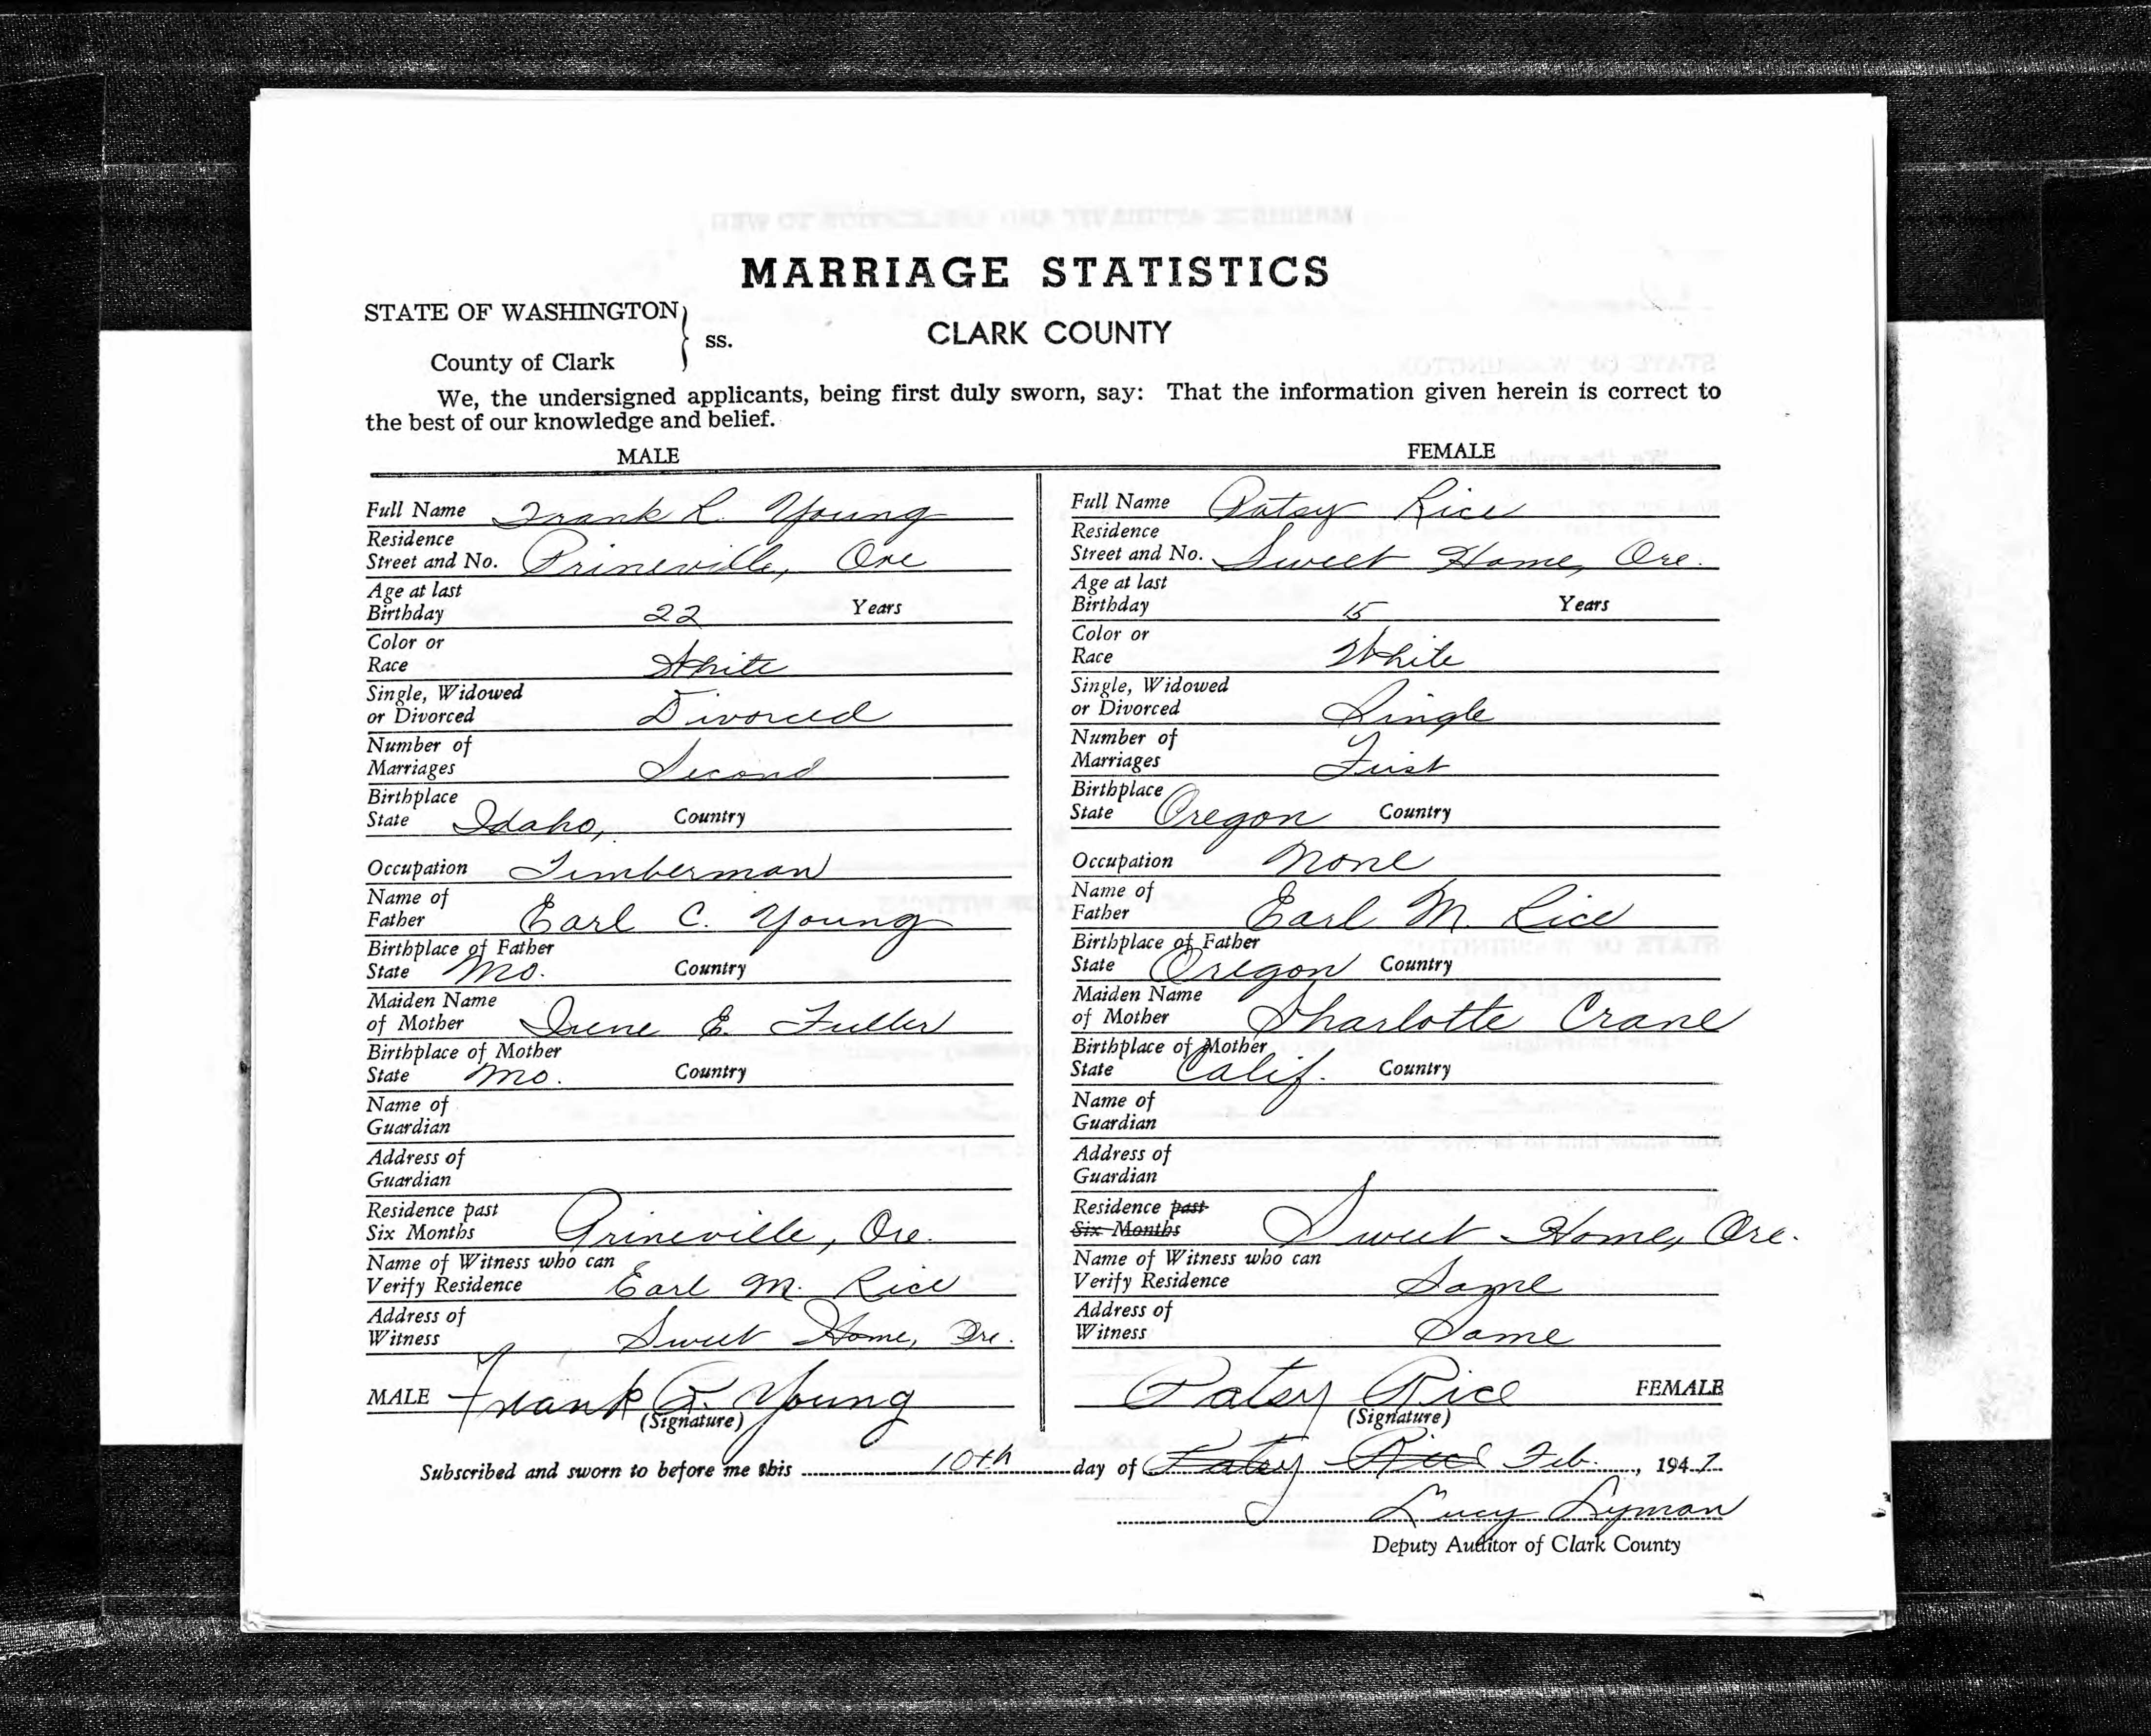 MARRIAGE STATISTICS
STATE OF WASHINGTON
CLARK COUNTY
ss.
County of Clark
We, the undersigned applicants, being first duly sworn, say: That the information given herein is correct to
the best of our knowledge and belief.
MALE
Full Name Frank R. Young
Residence
Street and No. Prineville, Ore
Age at last
Birthday 22 Years
Color or
Race White
Single, Widowed
or Divorced Divorced
Number of
Marriages Second
Birthplace
State Idaho, Country
Occupation Timberman
Name of
Father Earl C. Young
Birthplace of Father
State Mo. Country
Maiden Name
of Mother Irene E. Fuller
Birthplace of Mother
State Mo. Country
Name of
Guardian
Address of
Guardian
Residence past
Six Months Prineville, Ore.
Name of Witness who can
Verify Residence Earl M. Rice
Address of
Witness Sweet Home, Ore.
MALE Frank R. Young
(Signature)
FEMALE
Full Name Patsy Rice
Residence
Street and No. Sweet Home, Ore.
Age at last
Birthday 15 Years
Color or
Race White
Single, Widowed
or Divorced Single
Number of
Marriages First
Birthplace
State Oregon Country
Occupation None
Name of
Father Earl M. Rice
Birthplace of Father
State Oregon Country
Maiden Name
of Mother Sharlotte Crane
Birthplace of Mother
State Calif. Country
Name of
Guardian
Address of
Guardian
Residence past
Six Months Sweet Home, Ore.
Name of Witness who can
Verify Residence Same
Address of
Witness Same
Patsy Rice FEMALE
(Signature)
Subscribed and sworn to before me this 10th day of Patsy Rice Feb., 1947
Lucy Lyman
Deputy Auditor of Clark County